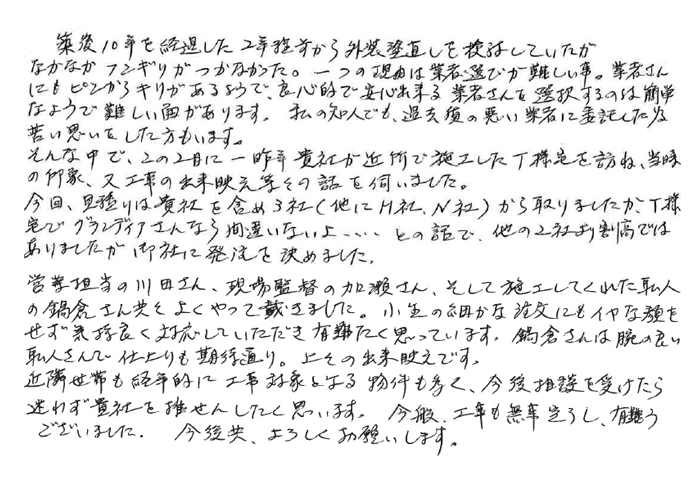 築後10年を経過した2年程前から外装塗直しを検討していたが
なかなかフンギリがつかなかった。一つの理由は業者選びが難しい事。業者さん
にもピンからキリがあるようで、良心的で安心出来る業者さんを選択するのは簡単
なようで難しい面があります。私の知人でも、過去質の悪い業者に委託した為
苦い思いをした方もいます。
そんな中で、この2月に一昨年貴社が近所で施工したT様宅を訪ね、当時
の印象、又工事の出来映え等その話を伺いました。
今回、見積りは貴社を含め3社(他にH社、N社)から取りましたが、T様
宅でグランディアさんなら間違いないよ‥‥との話で、他の2社より割高では
ありましたが御社に発注を決めました。
営業担当の川田さん、現場監督の加瀬さん、そして施工してくれた職人
の鍋倉さん共々よくやって戴きました。小生の細かな注文にもイヤな顔を
せず気持良く対応していただき有難たく思っています。鍋倉さんは腕の良い
職人さんで仕上りも期待通り。上々の出来映えです。
近隣世帯も経年的に工事対象となる物件も多く、今後相談を受けたら
迷わず貴社を推せんしたく思います。今般、工事も無事完了し、有難う
ございました。今後共、よろしくお願いします。